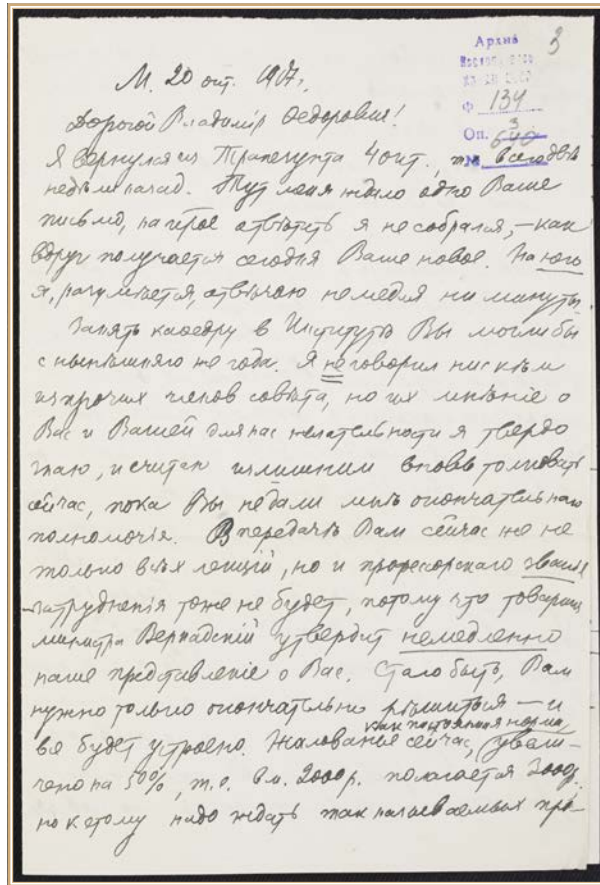 Архив
3
Ф 134
Оп. 3
№
М. 20 окт. 1917 г.
Дорогой Владимір Федорович!
Я вернулся из Трапезунта 4 окт., т.е. всего двѣ
недѣли назад. Тут меня ждало одно Ваше
письмо, на котрое отвѣтить я не собрался, – как
вдруг получается сегодня Ваше новое. На него
я, разумѣется, отвѣчаю не медля ни минуты.
Занять каѳедру в Институтѣ Вы могли бы
с нынѣшняго же года. Я не говорил ни с кѣм
из прочих членов совѣта, но их мнѣніе о
Вас и Вашей для нас желательности я твердо
знаю, и считаю излишним вновь толковать
сейчас, пока Вы не дали мнѣ окончательнаго
полномочія. В передачѣ Вам сейчас же не
только всѣх лекцій, но и профессорскаго званія
затрудненія тоже не будет, потому что товарищ
министра Вернадскій утвердит немедленно
наше представленіе о Вас. Стало быть, Вам
нужно только окончательно рѣшиться – и
все будет устроено. Жалованье сейчас, как постоянная норма, увели-
чено на 50%, т.е. вм. 2000 р. полагается 3000 р.
но к этому надо ждать так называемых про-